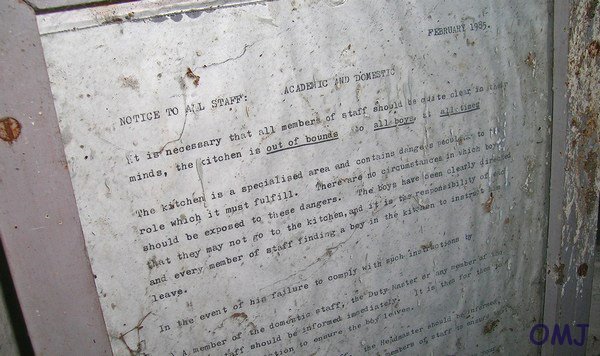 FEBRUARY 1985.
NOTICE TO ALL STAFF: ACADEMIC AND DOMESTIC
It is necessary that all members of staff should be quite clear in their
minds, the kitchen is out of bounds to all boys at all times
The kitchen is a specialised area and contains dangers peculiar to
role which it must fulfill. There are no circumstances in which boys
should be exposed to these dangers. The boys have been clearly directed
that they may not go to the kitchen, and it is the responsibility of each
and every member of staff finding a boy in the kitchen to instruct him
leave.
In the event of his failure to comply with such instructions by
A member of the domestic staff, the Duty Master or any member of the
staff should be informed immediately. It is then for them
to ensure the boy leaves.
the Headmaster should be informed.
members of staff to ensure
OMJ